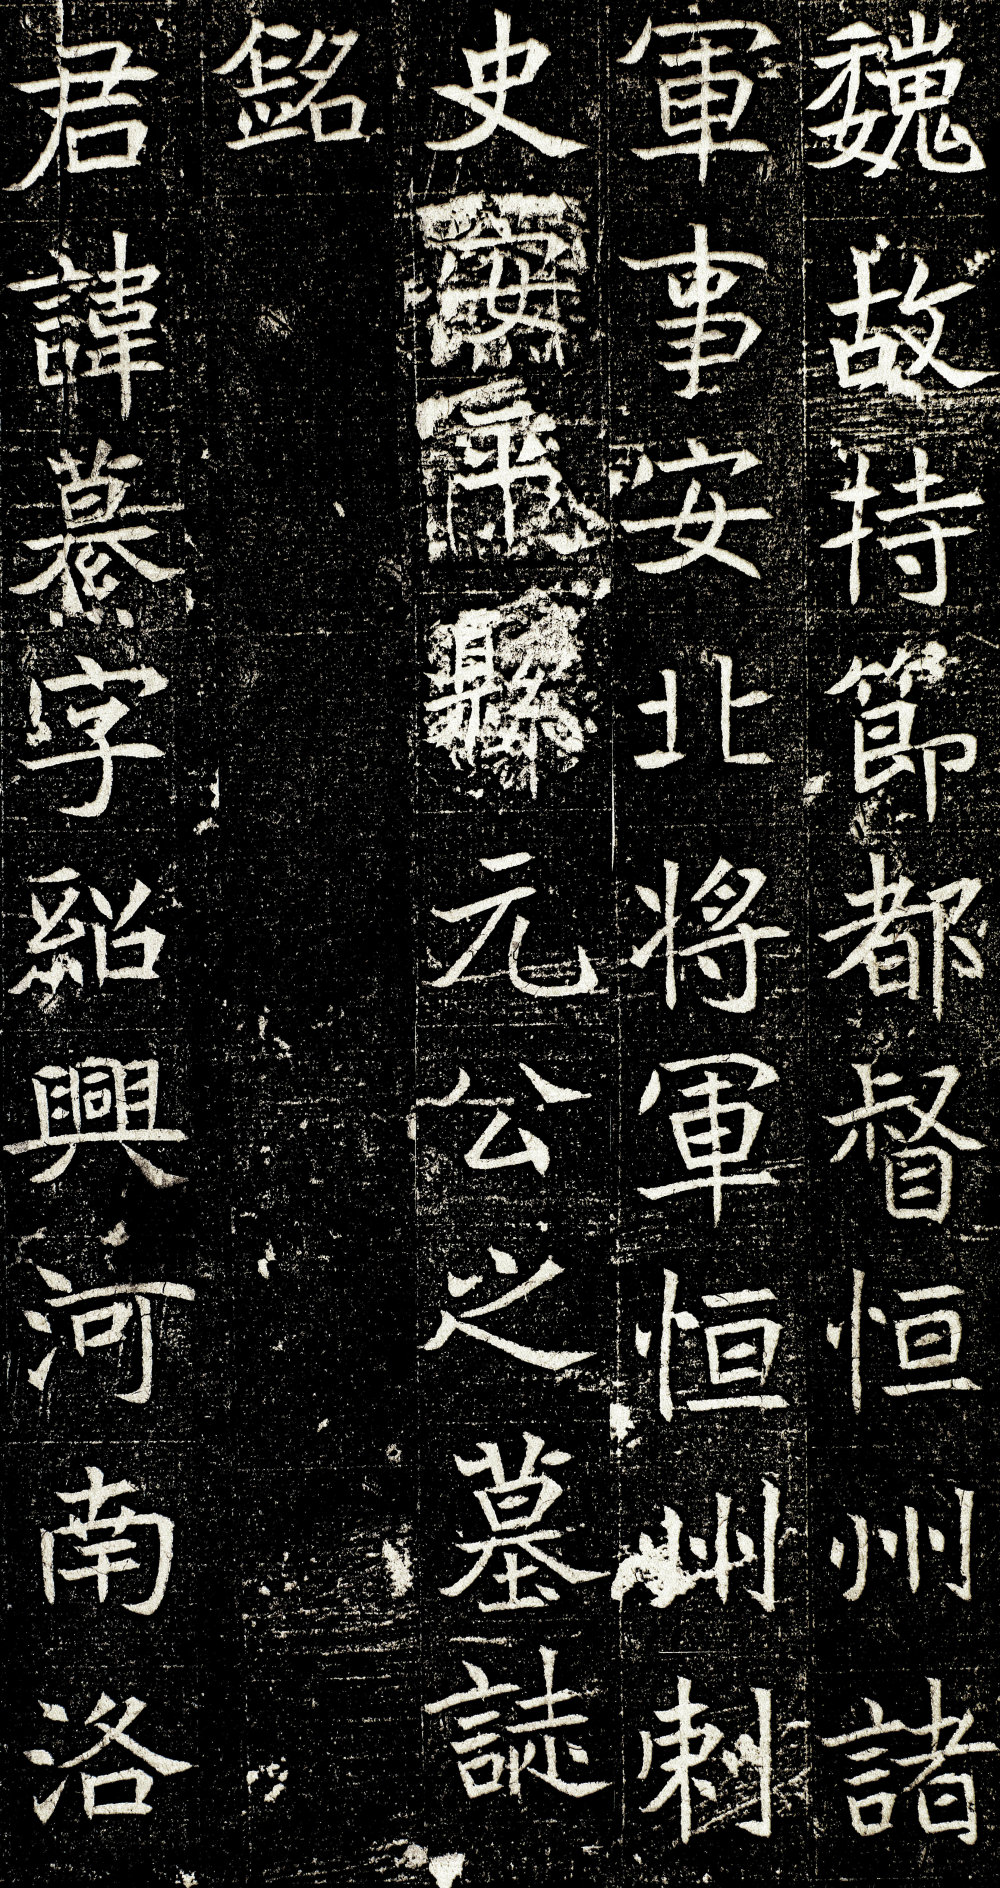 魏故持節都督恒州諸
軍事安北將軍恒州刺
史安平縣元公之墓誌
銘
君諱纂字紹興河南洛